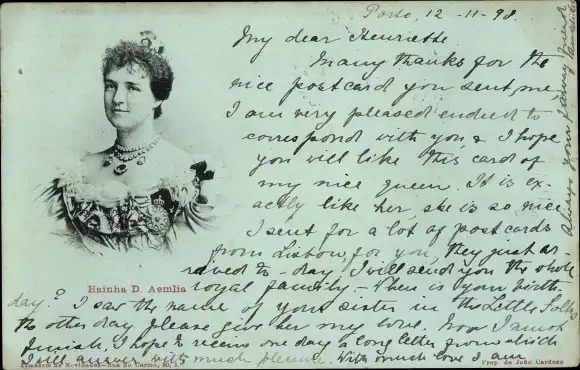 Porto, 12-11-98.
My dear Henriette
Many thanks for the
nice postcard you sent me,
I am very pleased endeed to
correspond with you & I hope
you will like this card of
my nice queen. It is ex-
actly like her, she is so nice
I sent for a lot of postcards
from Lisbon for you, they just ar-
rived to-day, I will send you the whole
royal family - When is your birth-
day? I saw the name of your sister in the Little Folks
the other day please give her my love. Now I must
finish, I hope to receive one day a long letter from which
I will answer with much pleasure. With much love I am
Always your loving friend
Rainha D. Aemlia
Armazem de Novidades—Rua do Carmo,
Prop. de João Cardozo